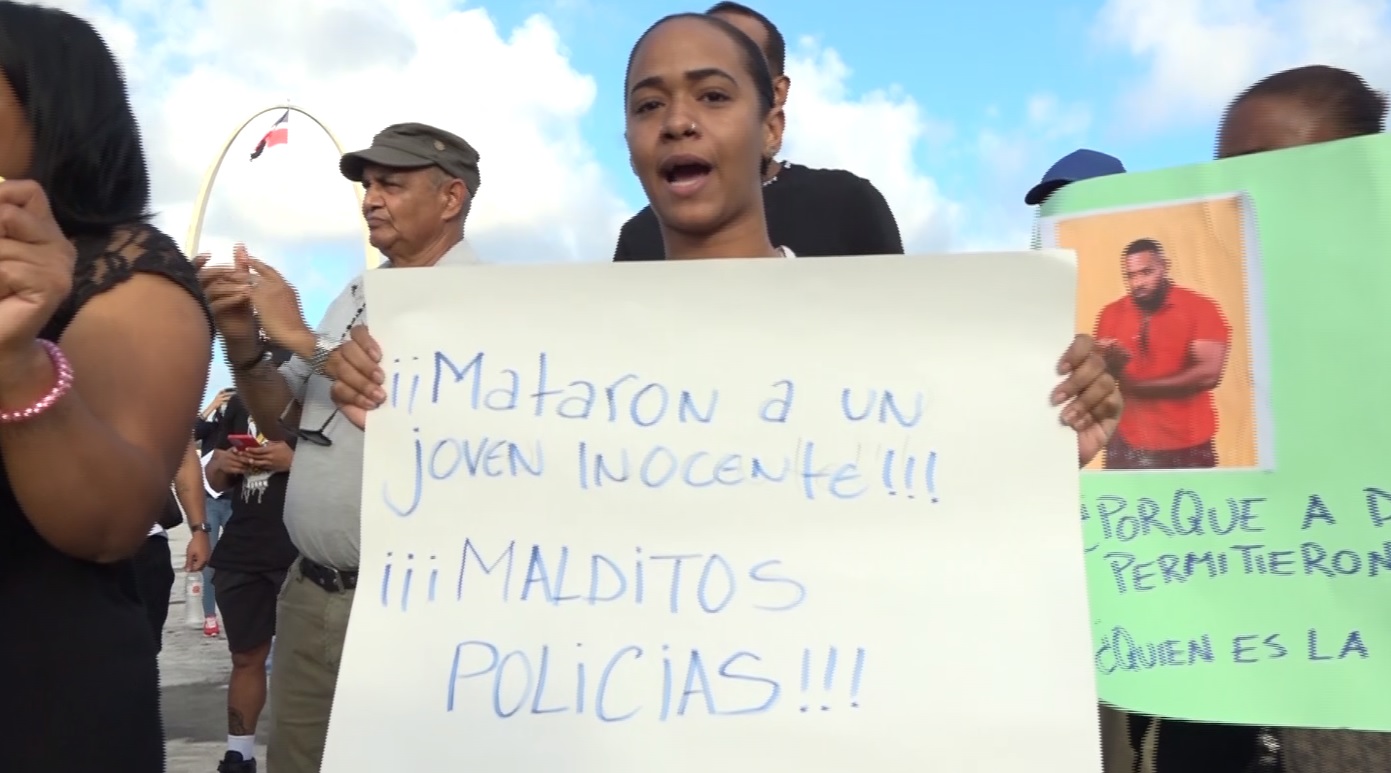 ¡¡Mataron a un
joven inocente!!!
¡¡¡MALDITOS
POLICIAS!!!
¿PORQUE A D
PERMITIERON
¿QUIEN ES LA